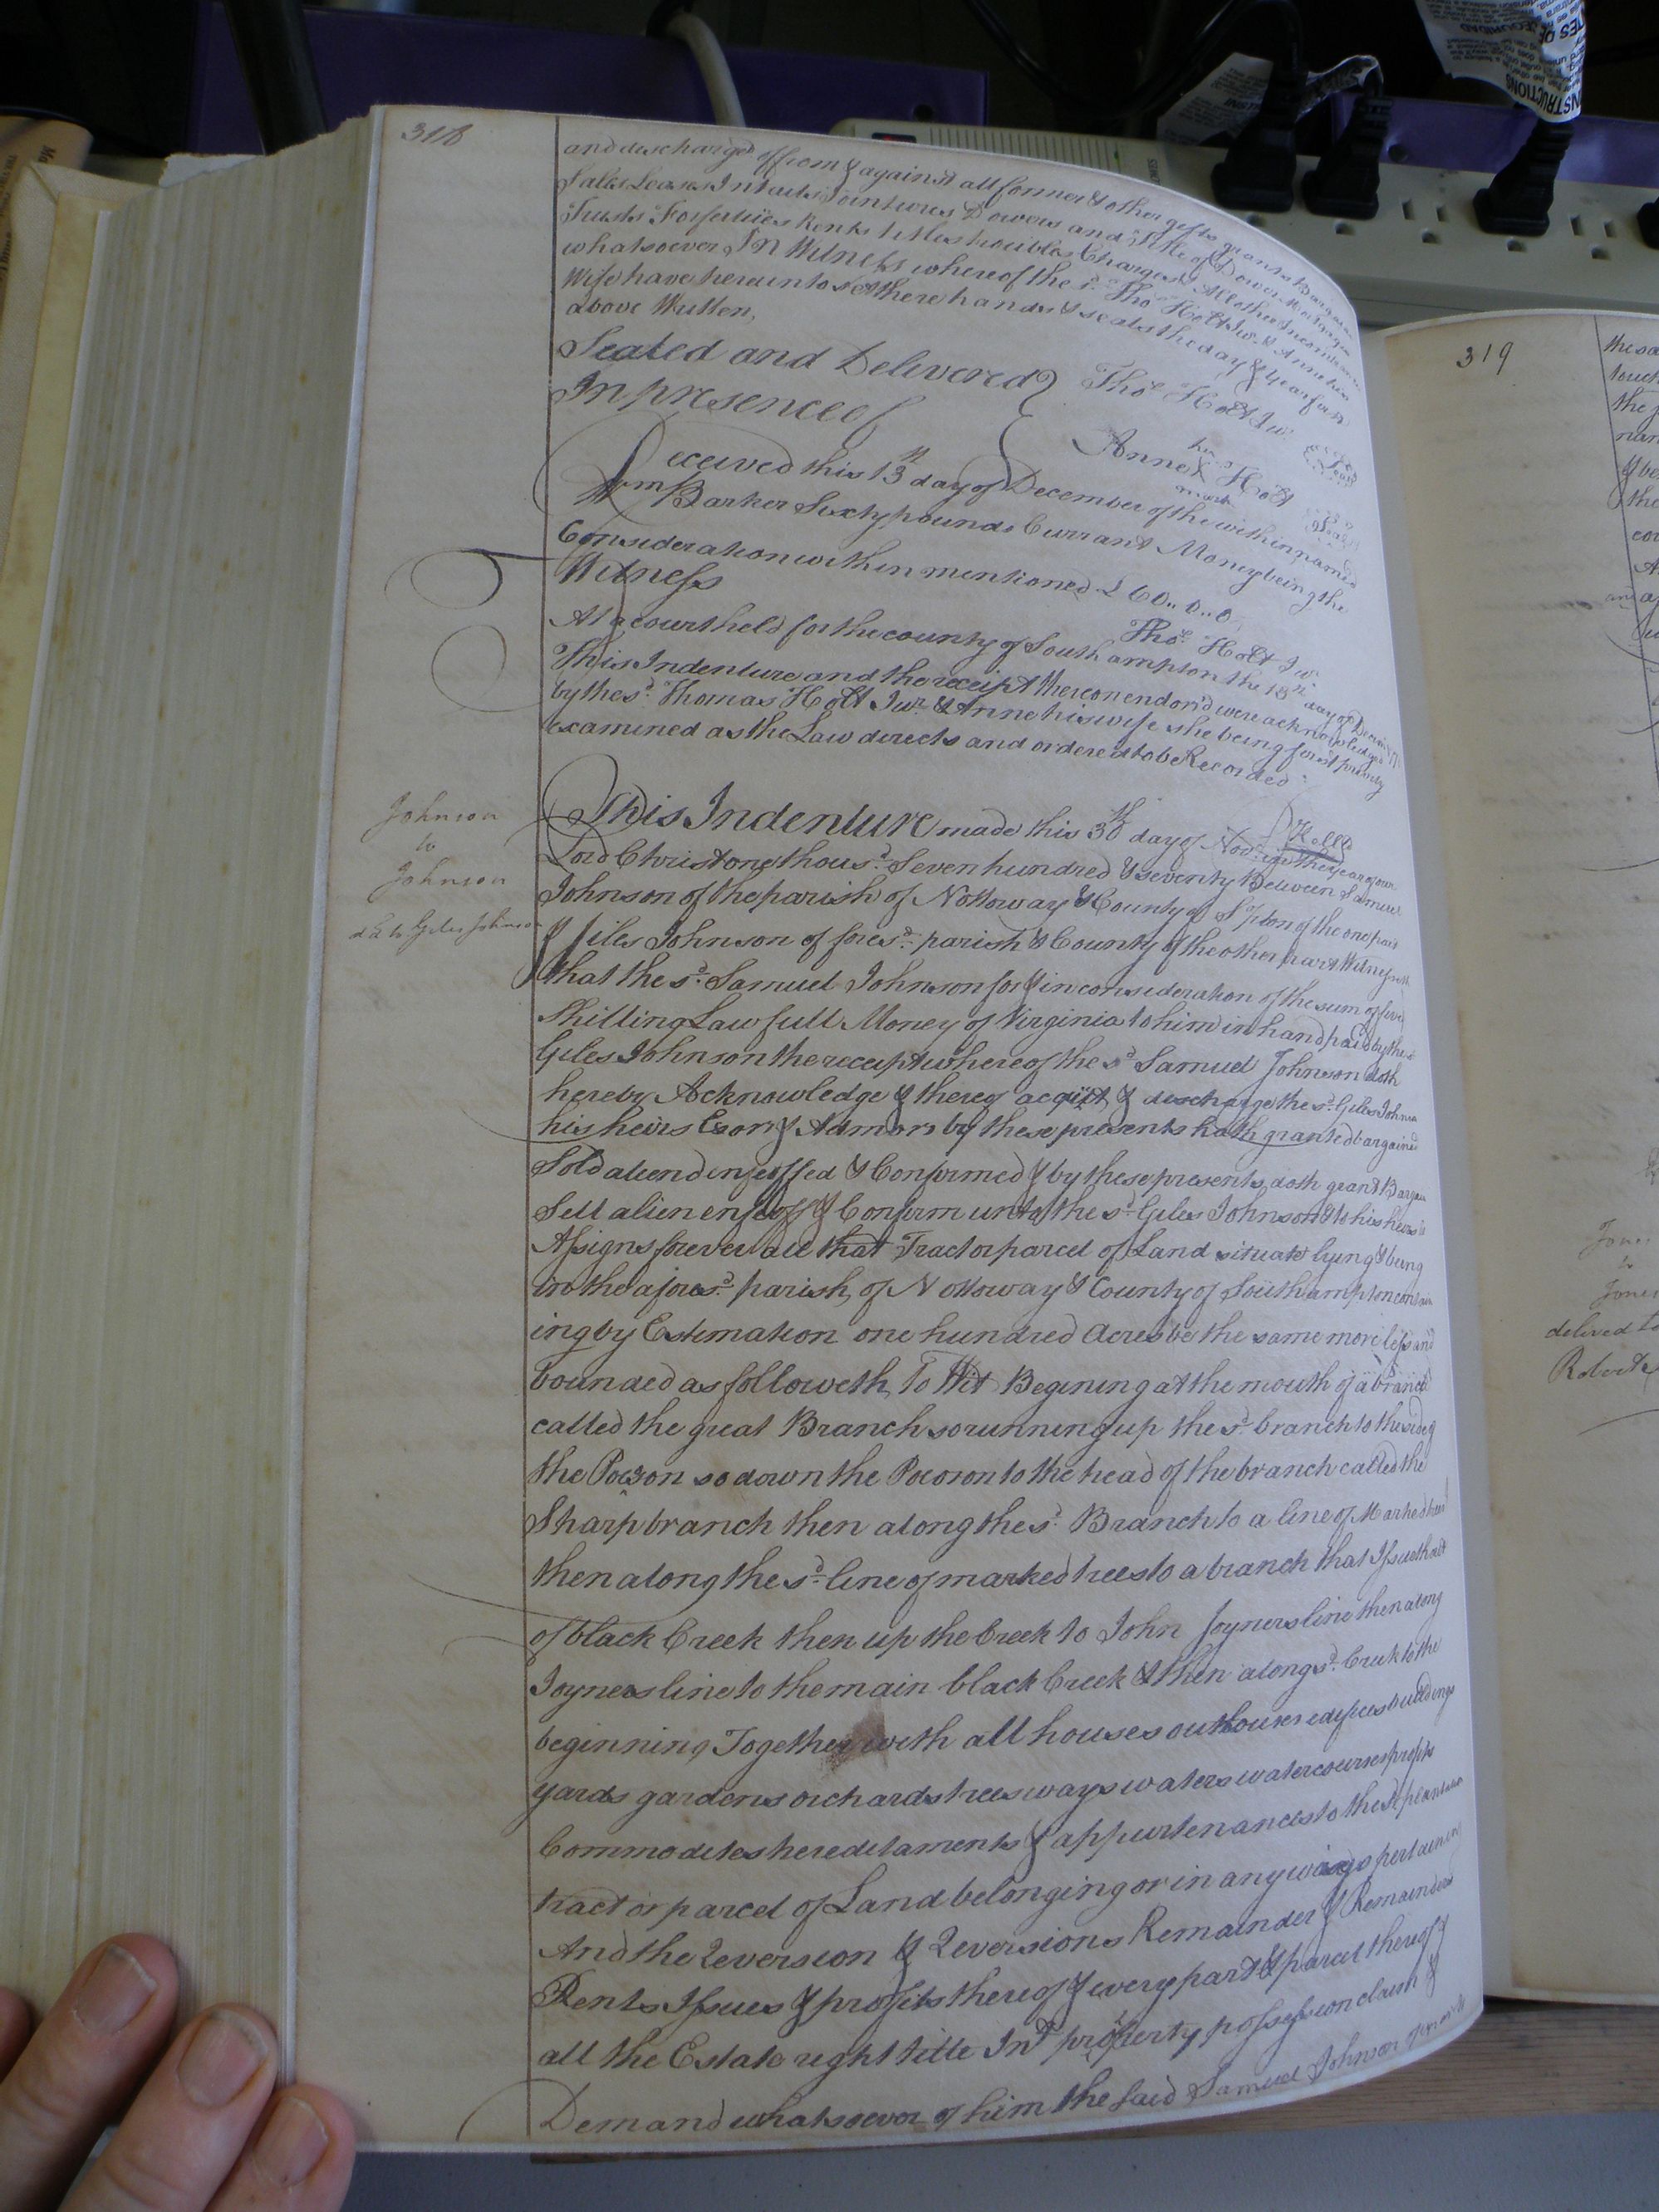 318
and discharged of from & against all former & other gifts grants Bargains
Sales Leases Intails Jointures Dowers and Title of Dower Mortgages
Trusts Forfeitures Rents titles troubles Charges & All other Incumbrances
whatsoever In Witness whereof the sd. Thos Holt Junr. & Anne his
Wife have hereunto set there hands & seals the day & year first
above Written,
Sealed and Delivered
In presence of
Thos. Holt Junr.
Seal
her
Anne X Holt
mark
Seal
Received this 13th day of December of the within named
Wm Barker Sixty pounds Currant Money being the
Consideration within mentioned £ 60..0..0
Witness
Thos. Holt Junr.
At a court held for the county of Southampton the 13th day of Decem
This Indenture and the receipt thereon endors'd were acknowledged
by the sd. Thomas Holt Junr. & Anne his wife she being first privily
examined as the Law directs and ordered to be Recorded
Johnson
to
Johnson
dd to Giles Johnson
This Indenture made this 30th day of Novr. in the year of our
Lord Christ one thousd. Seven hundred & seventy Between Samuel
Johnson of the parish of Nottoway & County of S'pton of the one part
& Giles Johnson of foresd. parish & County of the other part Witnesseth
that the sd. Samuel Johnson for & in consideration of the sum of five
Shilling Lawfull Money of Virginia to him in hand paid by the sd
Giles Johnson the receipt whereof the sd Samuel Johnson doth
hereby Acknowledge & thereof acquit & discharge the sd. Giles Johnson
his heirs Exors & Admors by these presents hath granted bargained
Sold aliend enfeoffed & Confirmed & by these presents doth grant Bargain
Sell alien enfeoff & Confirm unto the sd. Giles Johnson & to his heirs &
Assigns forever all that Tract or parcel of Land situate lying & being
in the aforesd. parish of Nottoway & County of Southampton contain
ing by Estimation one hundred Acres be the same more less and
bounded as followeth, To Wit Begining at the mouth of a branch
called the great Branch so running up the sd. branch to the side of
the Pocoson so down the Pocoson to the head of the branch called the
Sharp branch then along the sd. Branch to a line of Marked trees
then along the sd. line of marked trees to a branch that Issueth out
of black Creek then up the Creek to John Joyners line then along
Joyners line to the main black Creek & then along sd. Creek to the
beginning Together with all houses outhouses edifices buildings
yards gardens orchards trees ways waters watercourses profits
Commodites hereditaments & appurtenances to the sd plantation
tract or parcel of Land belonging or in any ways pertaining
And the Reversion & Reversions Remainder & Remainders
Rents Issues & profits thereof & every part & parcel thereof &
all the Estate right title Int property possession claim &
Demand whatsoever of him the said Samuel Johnson
319
the
Jones
to
Jones
delived to
INSTRUCTIONS